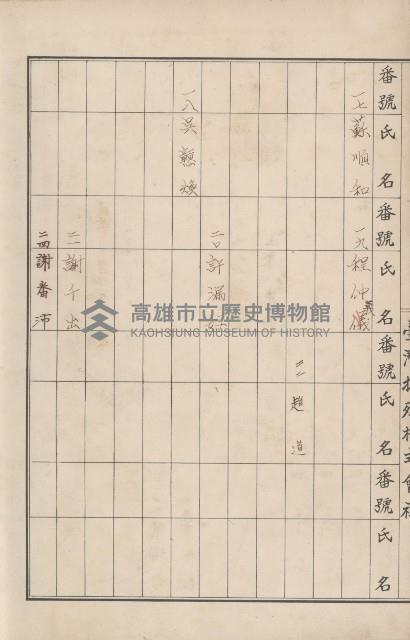 番號氏名番號氏名番號氏名番號氏名
一七蘇順和
一九程仲儀
義
一八吳
二〇許漏
二二趙道
二一謝
二四謝番沛
高雄市立歷史博物館
KAOHSIUNG MUSEUM OF HISTORY